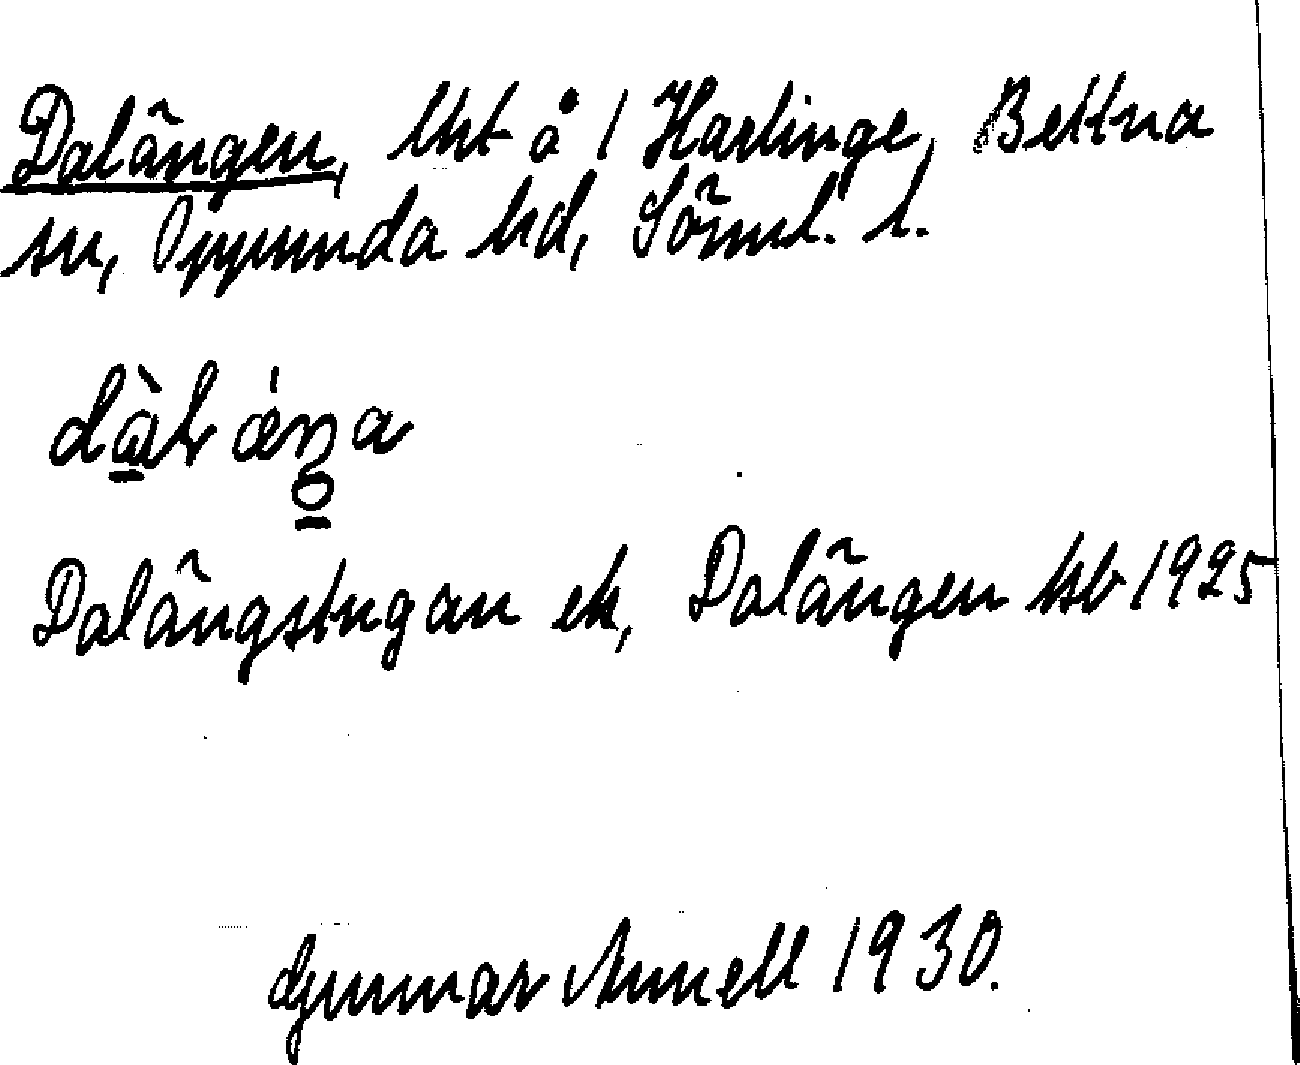 Dalängen, lht å 1 Harlinge, Bettna
sn, Oppunda hd, Söml. l.
Dalängstugan ek, Dalängen hsb 1925
Gunnar Annell 1930.